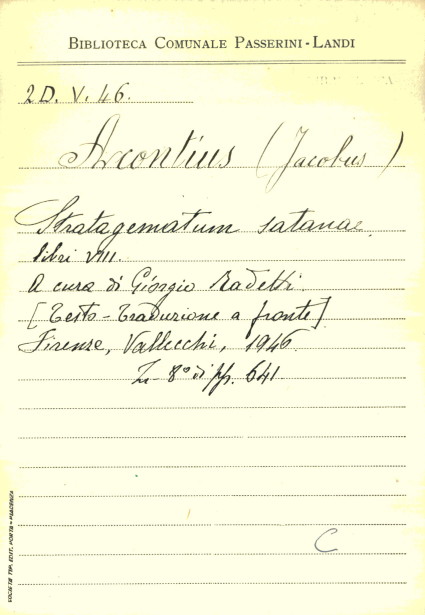 BIBLIOTECA COMUNALE PASSERINI-LANDI
2D. V. 46.
Acontius (Jacobus)
Stratagematum satanae.
libri VIII.
A cura di Giorgio Radetti.
[Testo-Traduzione a fronte]
Firenze, Vallecchi, 1946.
In 8° di pp. 641
C
SOCIETÀ TIP. EDIT. PORTA - PIACENZA